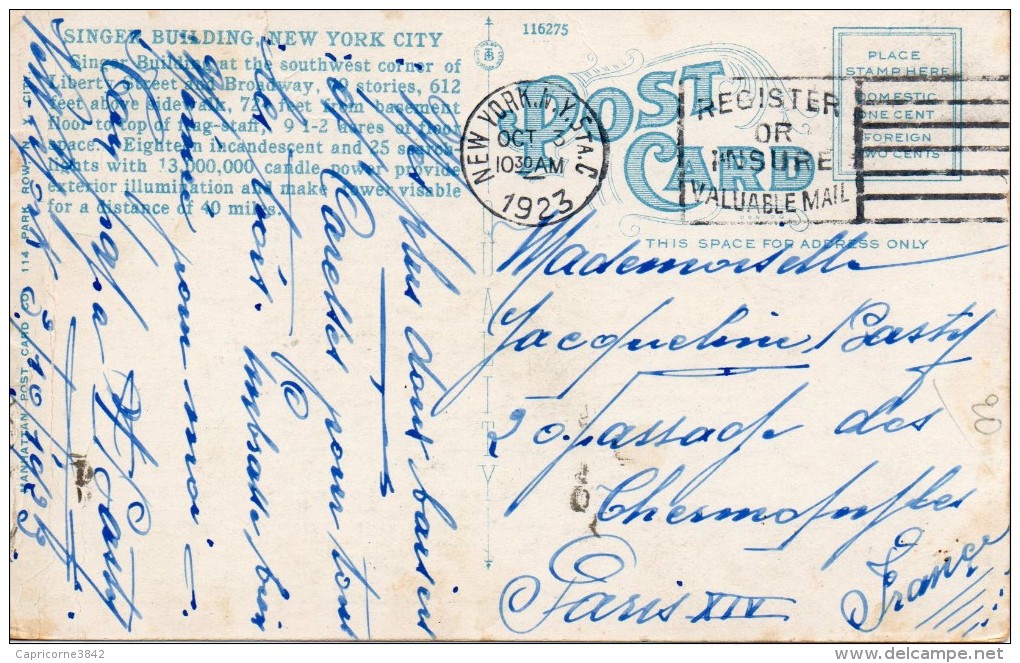 116275
SINGER BUILDING, NEW YORK CITY
Singer Building at the southwest corner of
Liberty Street and Broadway, 49 stories, 612
feet above sidewalk, 724 feet from basement
floor to top of flag-staff, 9 1-2 acres of floor
space. Eighteen incandescent and 25 search
lights with 13,000,000 candle power provide
exterior illumination and make tower visable
for a distance of 40 miles.
MANHATTAN POST CARD CO., 114 PARK ROW, N. Y. CITY
POST
CARD
THIS SPACE FOR ADDRESS ONLY
PLACE
STAMP HERE
DOMESTIC
ONE CENT
FOREIGN
TWO CENTS
NEW YORK, N.Y. STA. C
OCT 3
1030 AM
1923
REGISTER
OR
INSURE
VALUABLE MAIL
New York 3/10 1923
Mes plus doux baisers
et Caresses pour tous
les trois. Embrasse bien
mémé pour moi —
Ton papa
Mademoiselle
Jacqueline Casty
20 passage des
Thermopyles
Paris XIV
France
20
Capricorne3842
delcampe.net